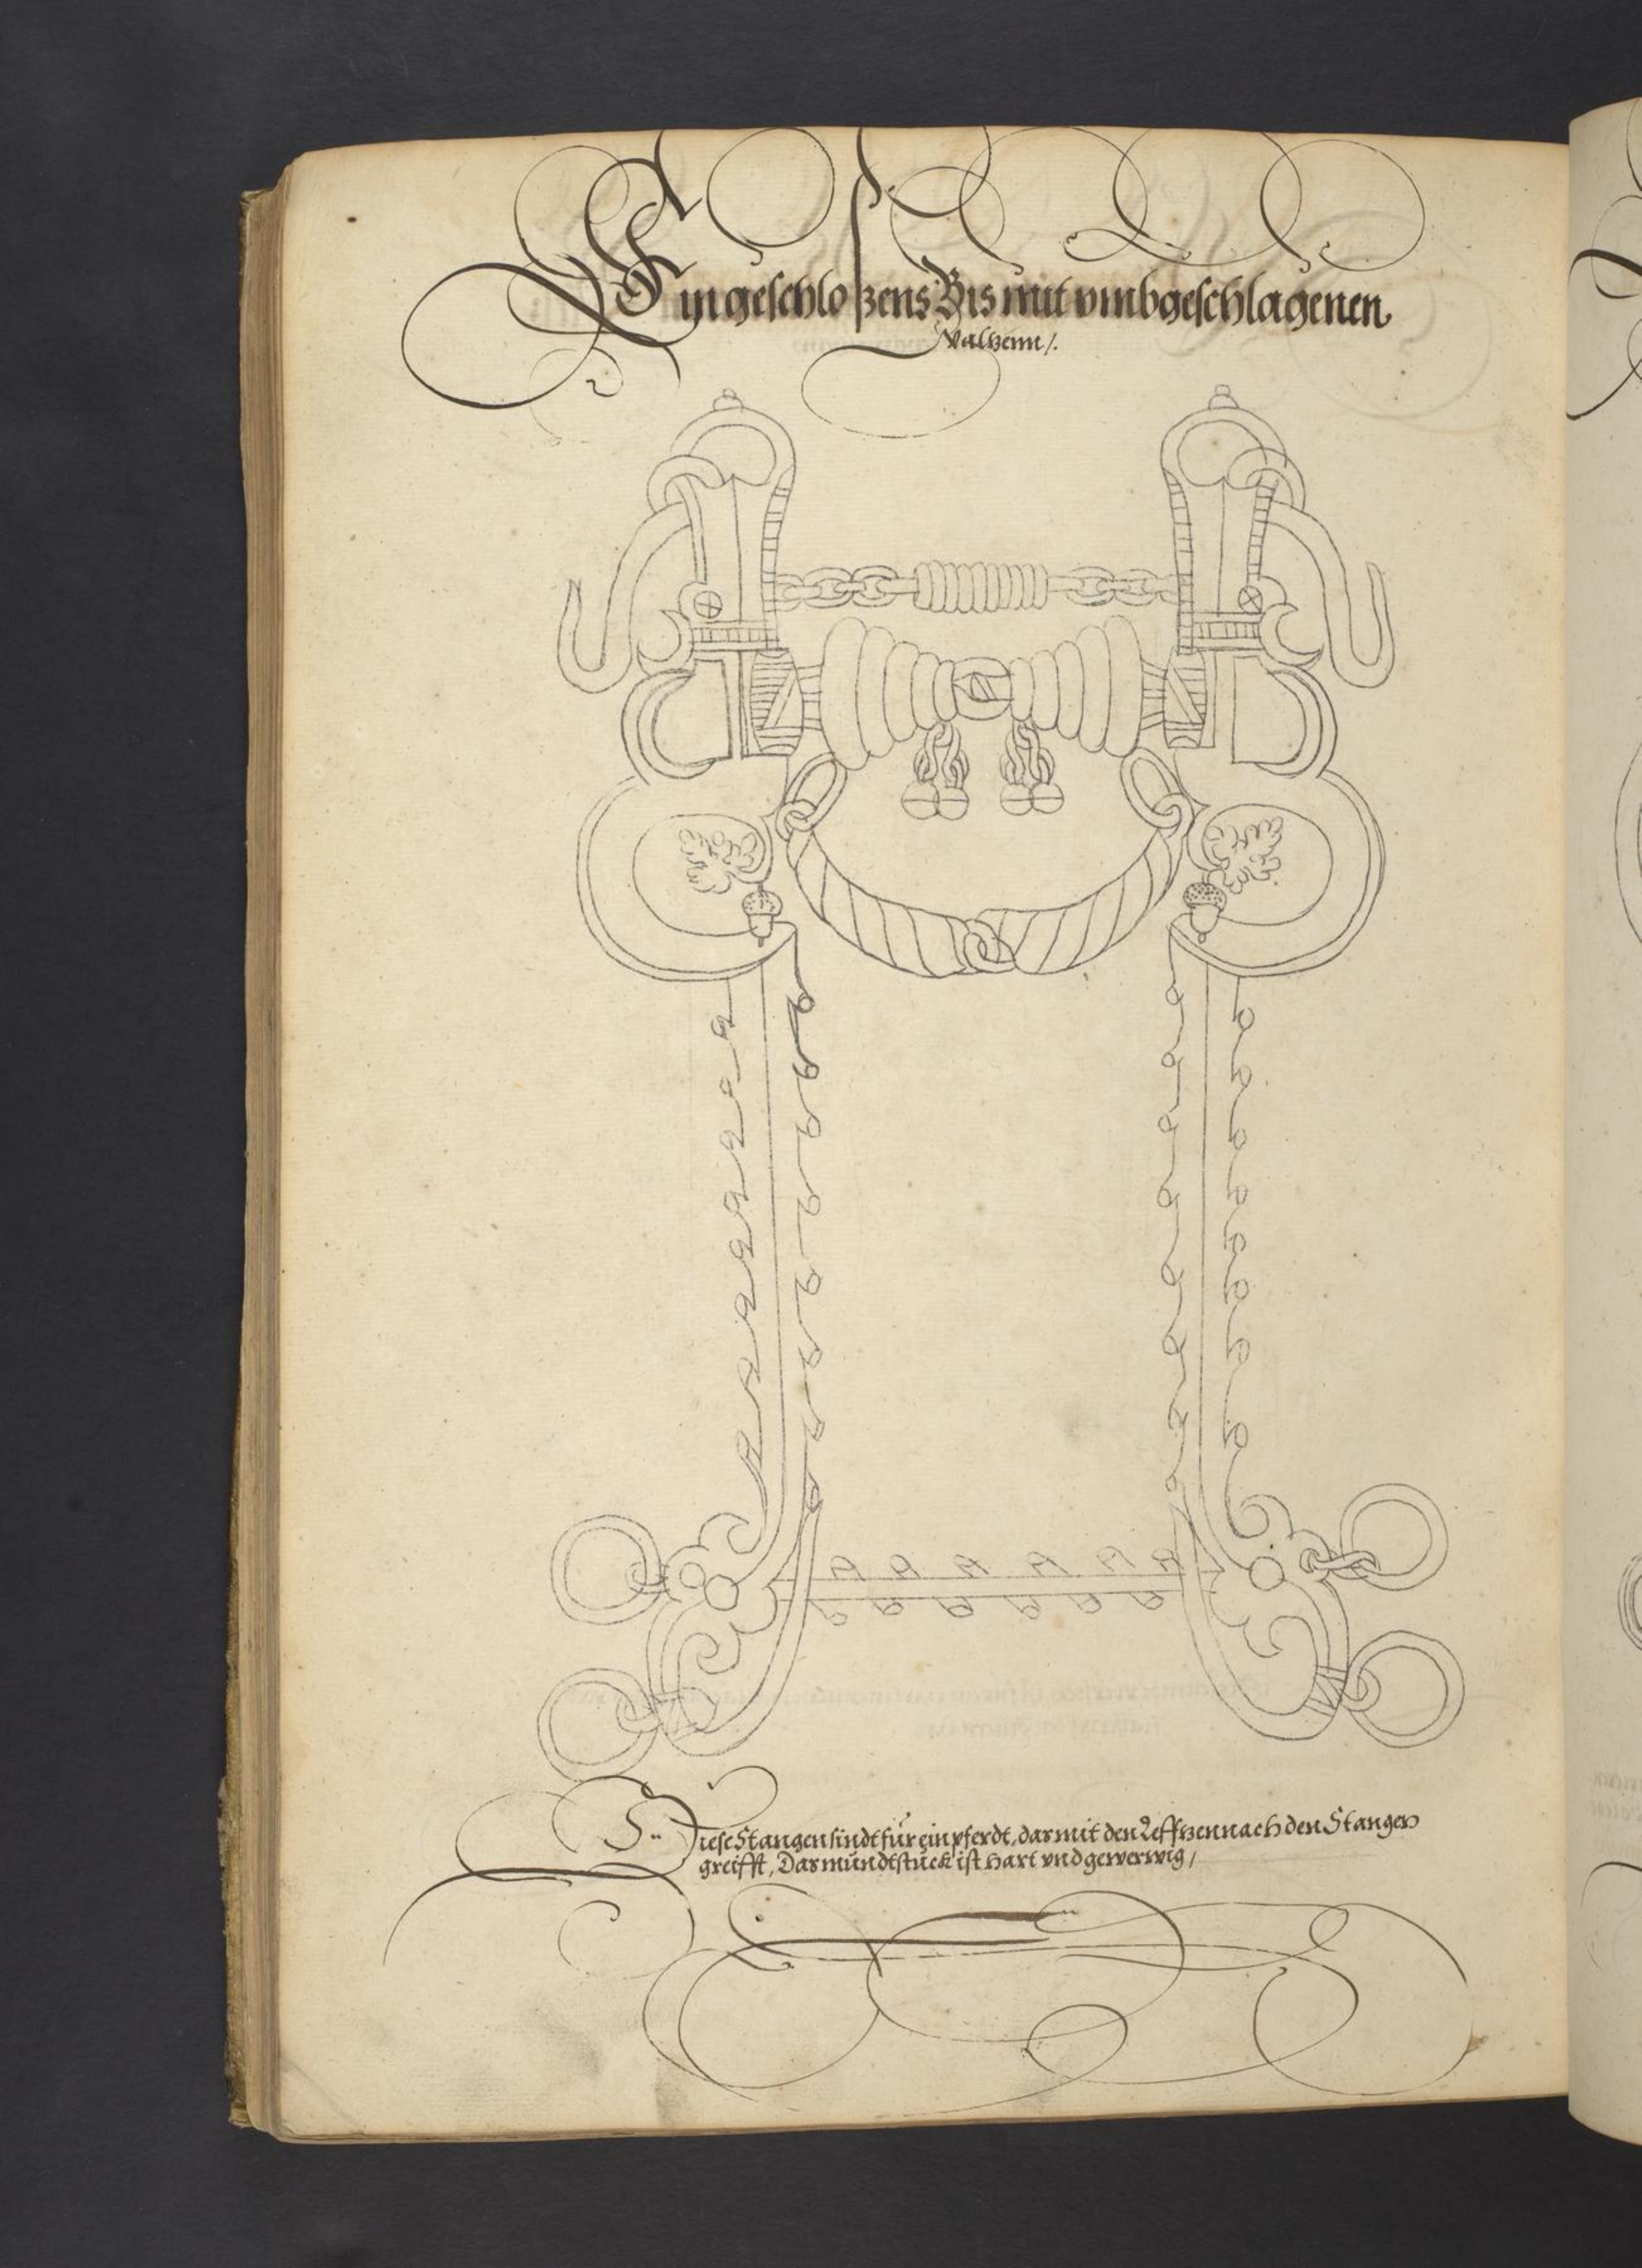 Ein geschloßens Bis mit vmbgeschlagenen
Valtzenn /.
Diese Stangen sindt für ein pferdt, das mit den Lefftzen nach den Stangen
greifft, Das mündtstück ist hart vnd